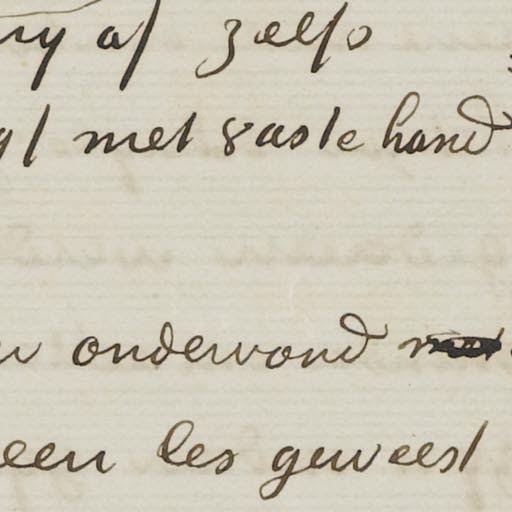 af zelfs
met vaste hand
ondervond
een les geweest